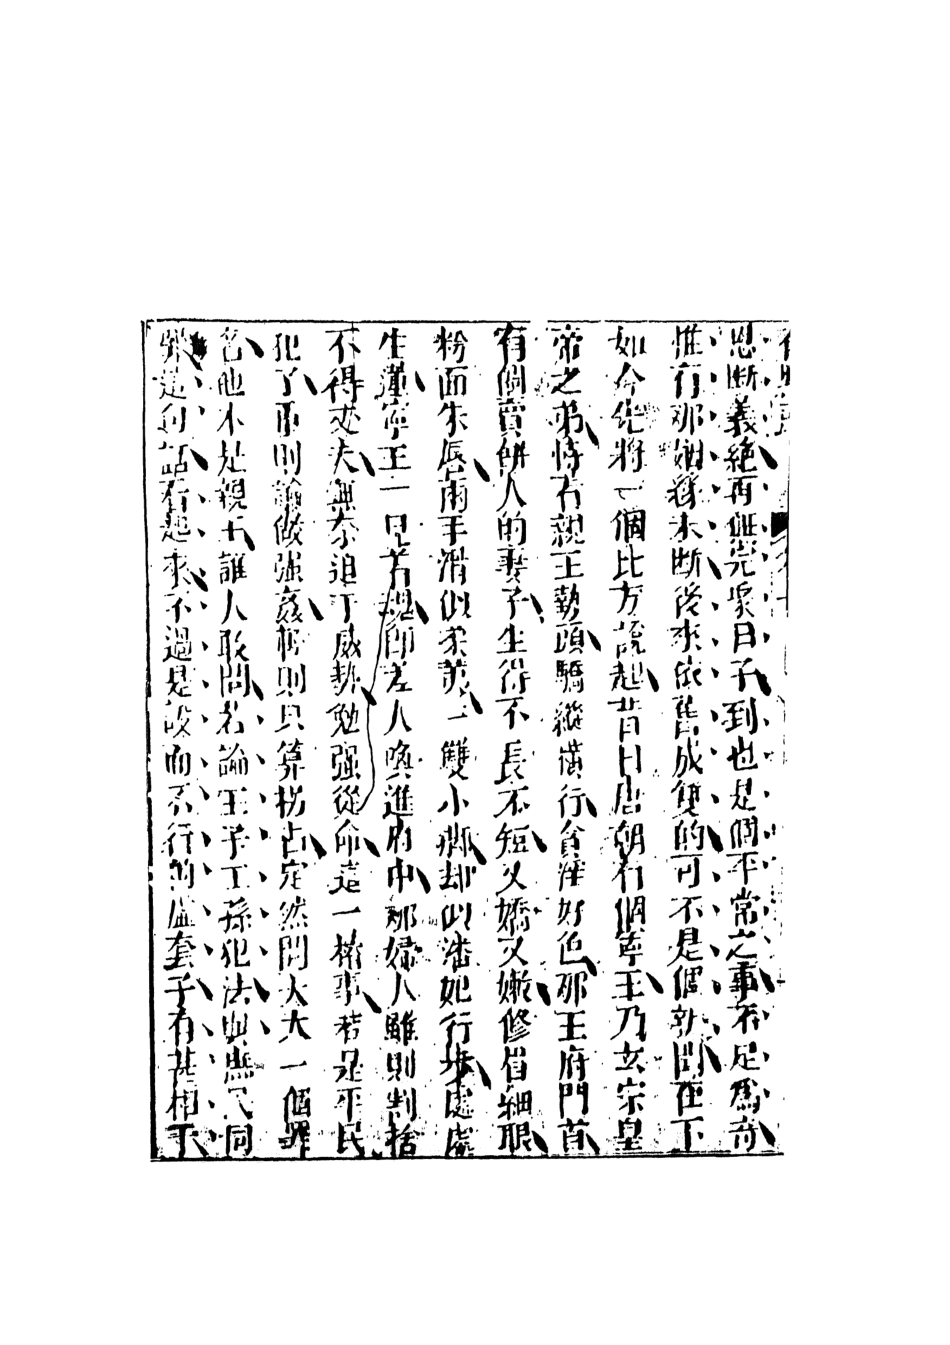 恩斷義絶再無完聚日子到也是個平常之事不足爲奇
惟有那姻緣未斷後來依舊成雙的可不是個新聞在下
如今先將一個比方說起昔日唐朝有個寧王乃玄宗皇
帝之弟恃着親王勢頭驕縱橫行貪淫好色那王府門首
有個賣餅人的妻子生得不長不短又嬌又嫩修眉細眼
粉面朱唇兩手滑似柔荑一雙小脚却似潘妃行步處處
生蓮寧王一見着魂即差人喚進府中那婦人雖則割捨
不得丈夫無奈迫于威勢勉强從命這一樁事若是平民
犯了重則論做强姦輕則只算拐占定然問大大一個罪
名他本是親王誰人敢問若論王子王孫犯法與庶民同
罪這句話看起來不過是設而不行的虛套子有甚相干